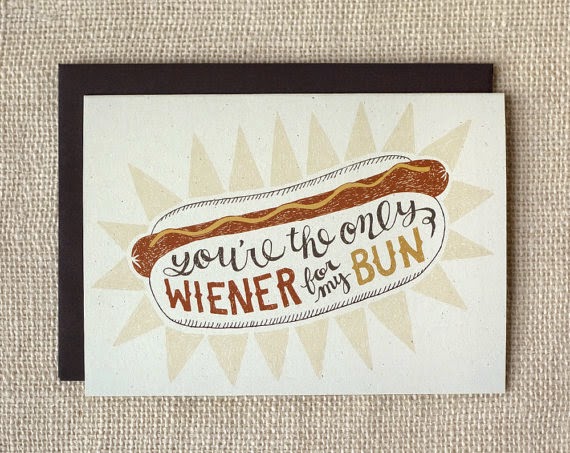 you're the only
WIENER for my BUN